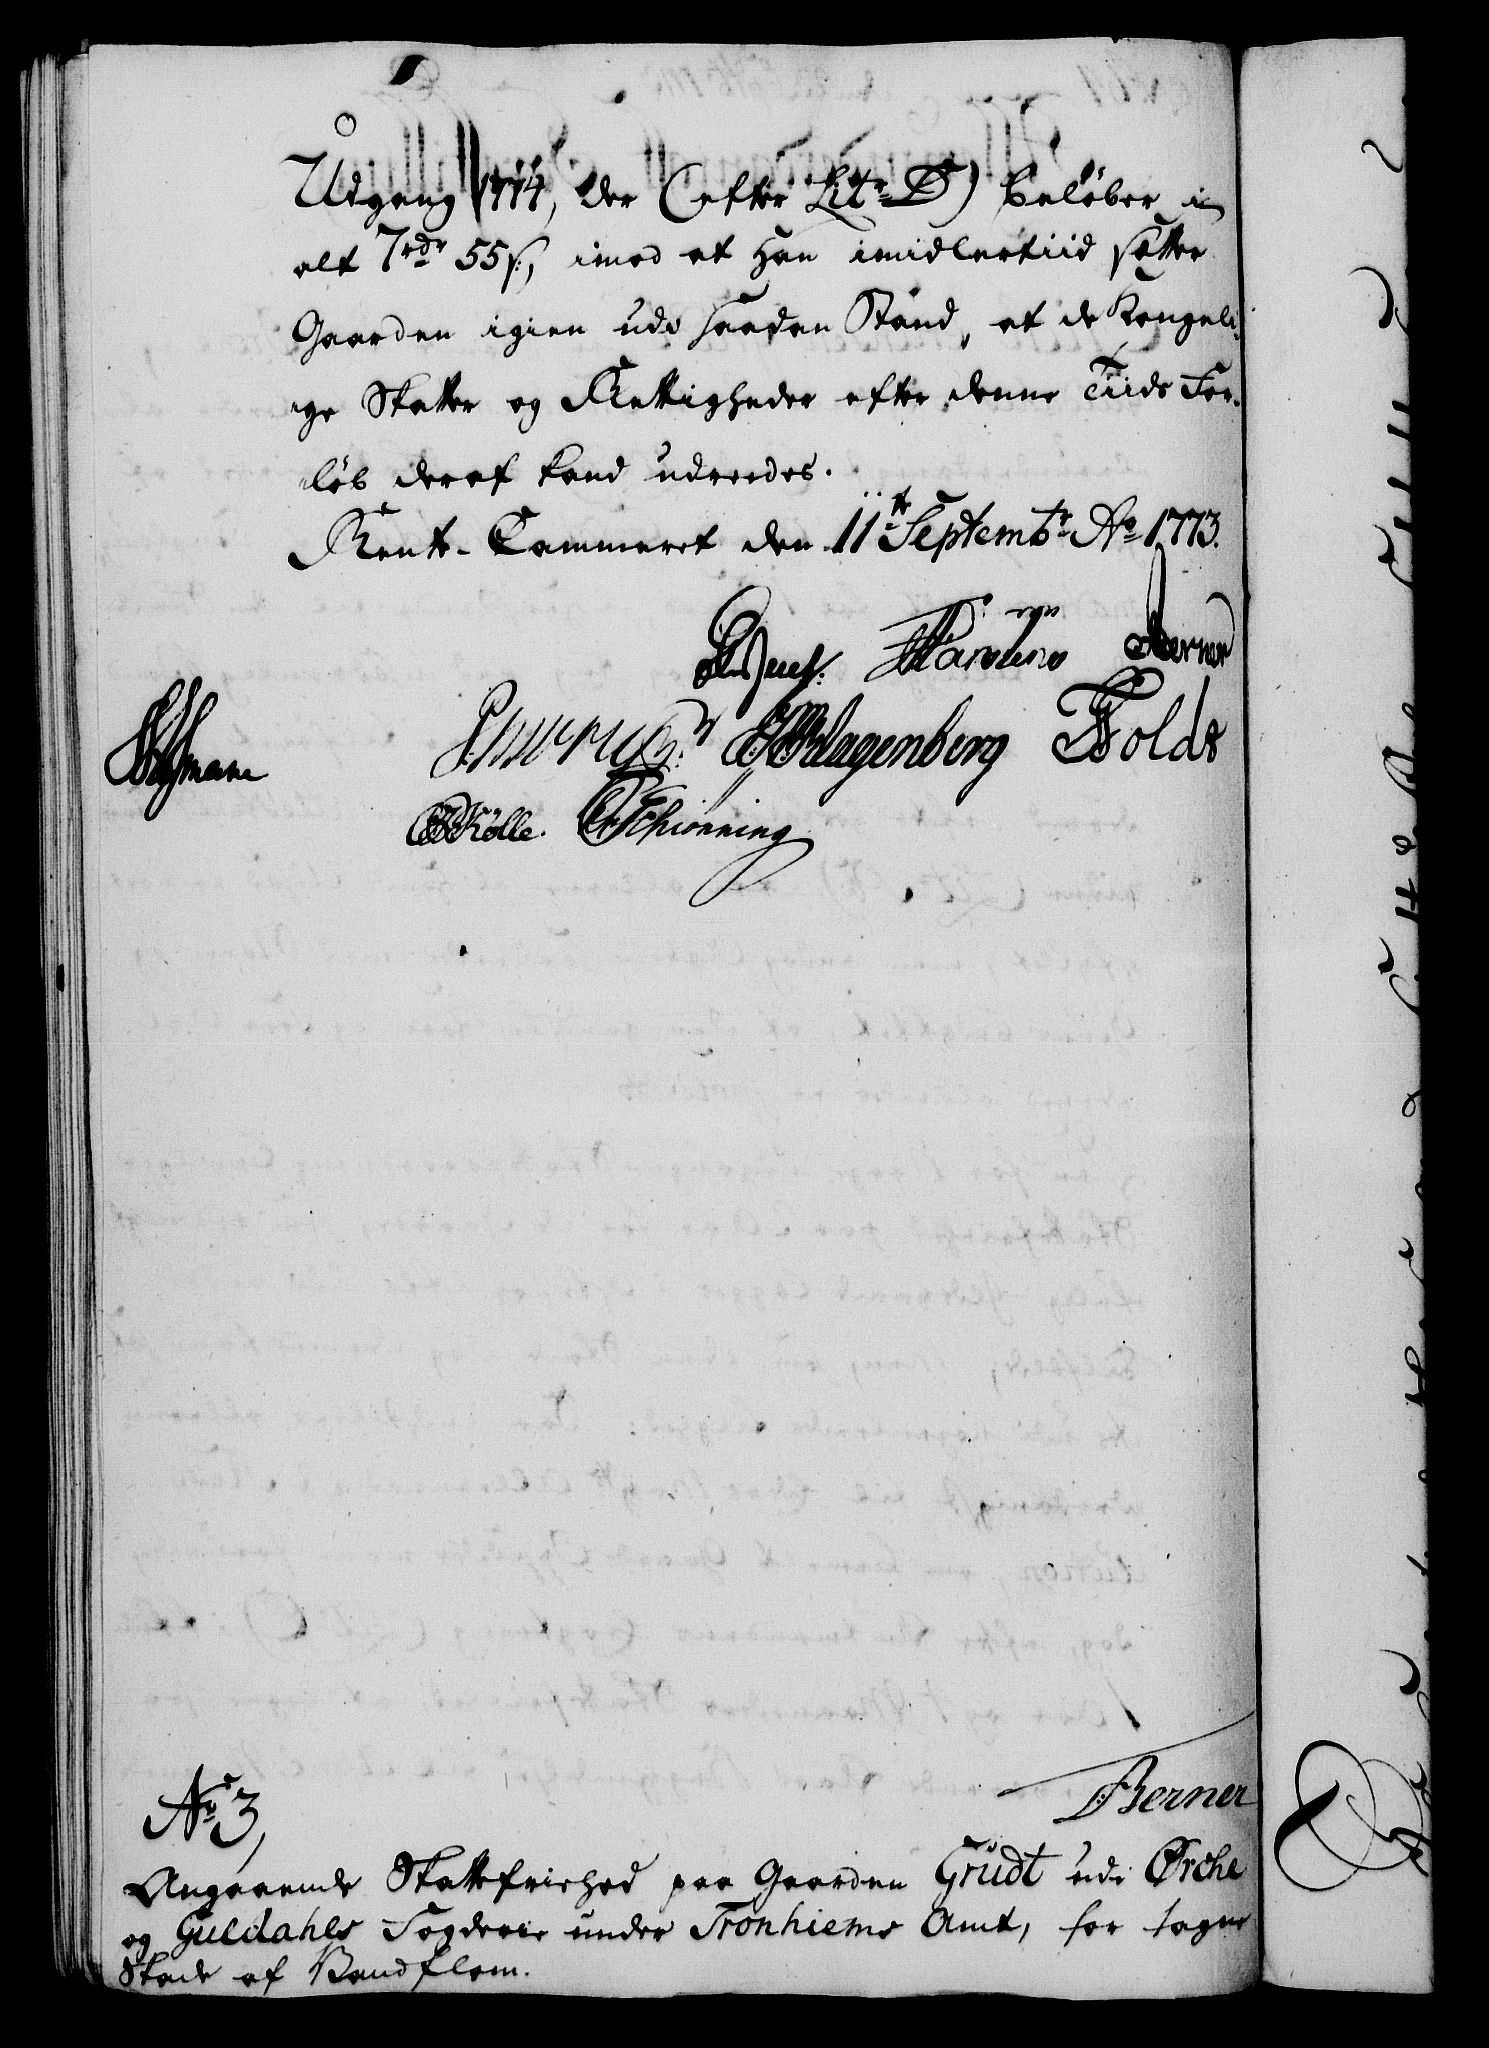 Udgang 1774, der (efter Litr. D) beløber i
alt 7 rdr 55 s, imod at han imidlertiid sætter
Gaarden igien udi saadan Stand, at de Kongeli-
ge Skatter og Rettigheder efter denne Tiids For-
løb deraf kand udreedes.
Rente-Cammeret den 11te Septembr Ao 1773.
Berner
Klagenberg Folds
Kølle. Schiønning
No 3,
Berner
Angaaende Skattefriehed paa Gaarden Grudt udi Ørche
og Guldahls Fogderie under Tronhiems Amt, for tagne
Skade af Vandflom.